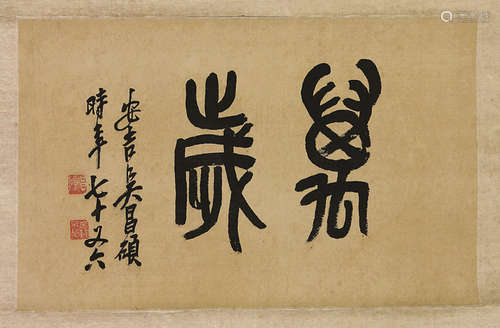 萬歲
安吉吳昌碩
時年七十又六